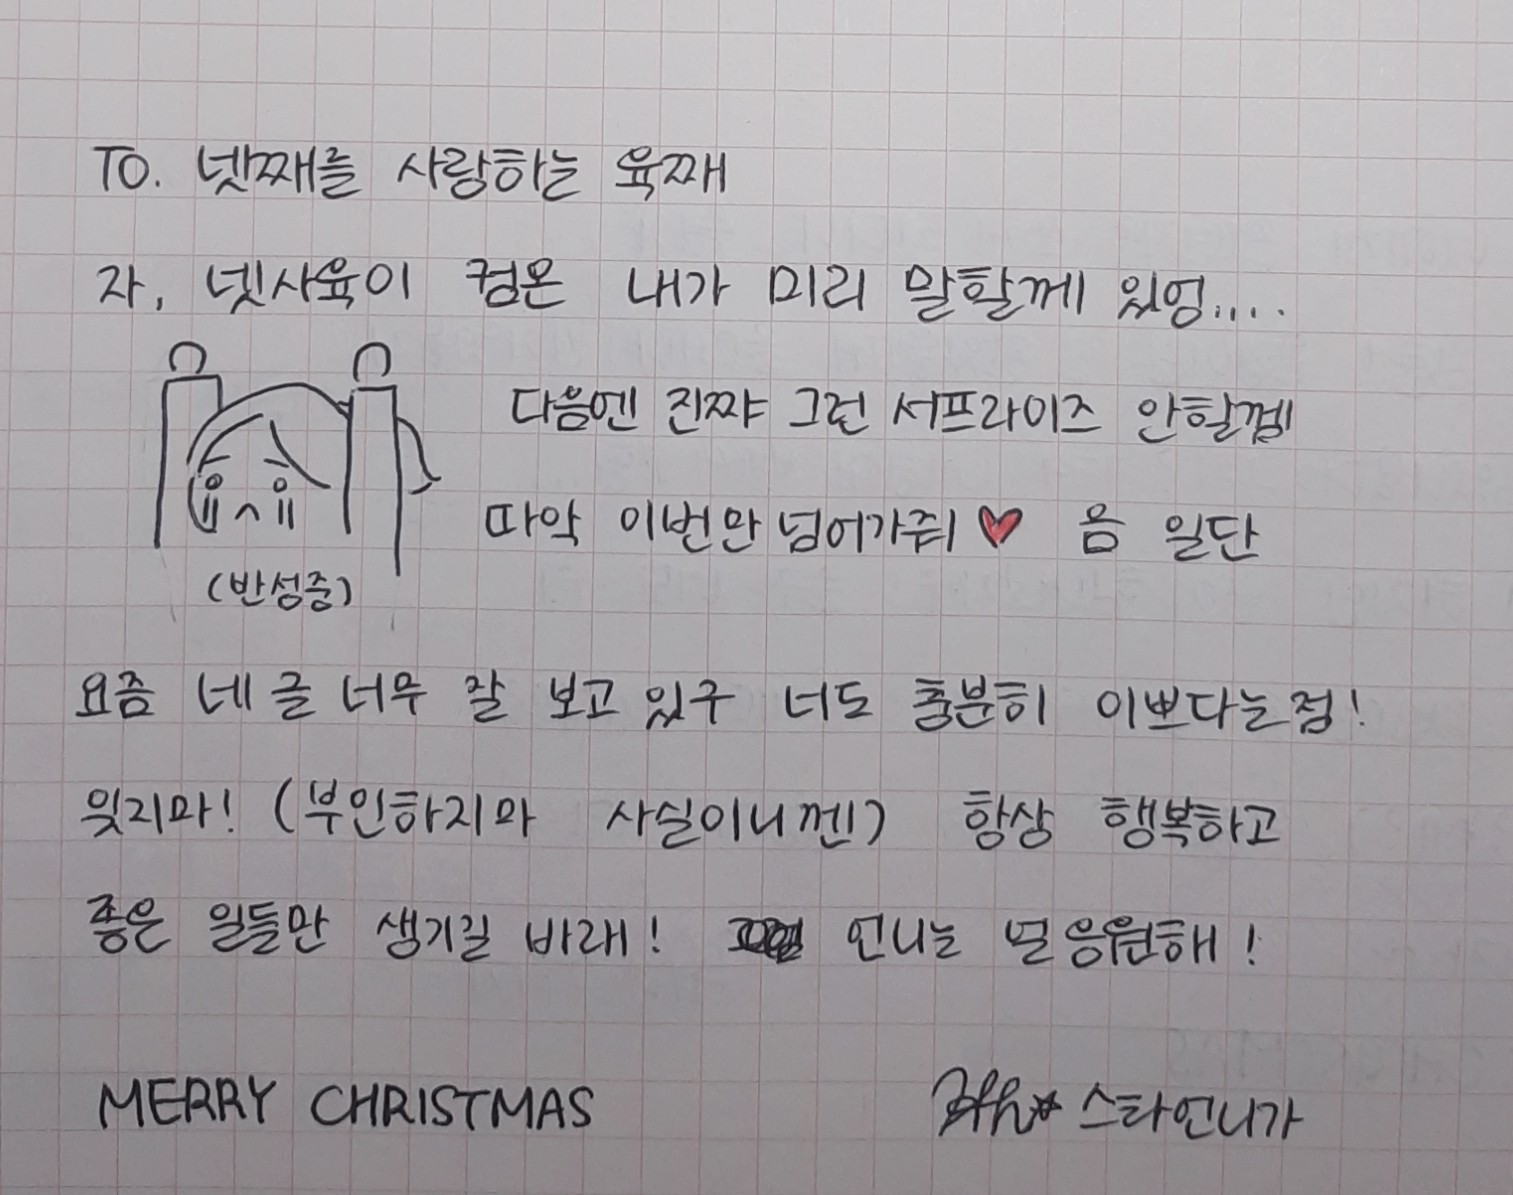 TO. 넷째를 사랑하는 육째
자, 넷사육이 컴온 내가 미리 말할께 있엉....
다음엔 진쨔 그런 서프라이즈 안할겜
따악 이번만 넘어가줘 ♥ 음 일단
(반성중)
요즘 네 글 너무 잘 보고 있구 너도 충분히 이쁘다는점!
잊지마! (부인하지마 사실이니껜) 항상 행복하고
좋은 일들만 생기길 바래! 언니는 널 응원해!
MERRY CHRISTMAS
스타언니가